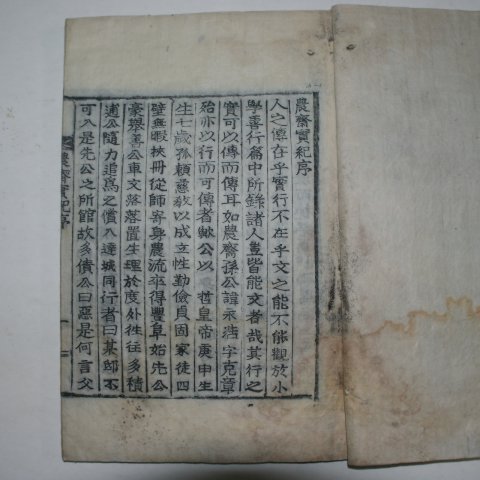 農齋實紀序
人之傳在乎實行不在乎文之能不能觀於小
學善行篇中所錄諸人豈皆能文者哉其行之
實可以傳而傳耳如農齋孫公諱永浩字克章
殆亦以行而可傳者歟公以 哲皇帝庚申生
生七歲孤賴慈敎以成立性勤儉貞固家徒四
壁無暇挾冊從師寄身農流卒得豐阜始先公
豪舉善公車文落落置生理於度外往往多積
逋公隨力追爲之償入達城同行者曰某邸不
可入是先公之所館故多債公曰惡是何言父
農齋實紀序 一